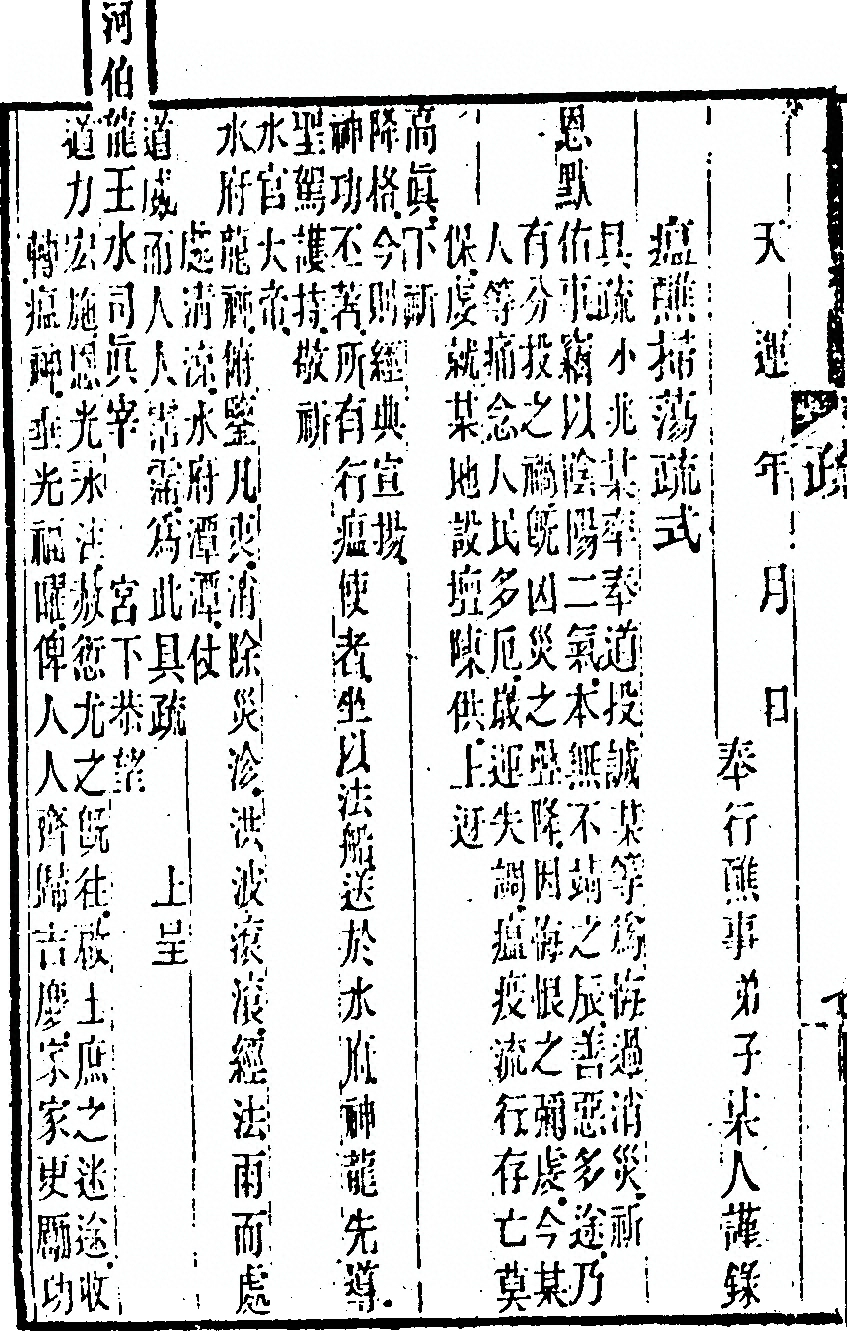 天運 年 月 日
奉行醮事弟子某人謹錄
瘟醮掃蕩疏式
具疏小兆某率奉道投誠某等為悔過消災祈
恩默佑事竊以陰陽二氣本無不靖之辰善惡多途乃
有分投之禍旣凶災之疊降因悔恨之彌虔今某
人等痛念人民多厄歲運失調瘟疫流行存亡莫
保虔就某地設壇陳供上迓
高眞下祈
降格今則經典宣揚
神功丕著所有行瘟使者坐以法船送於水府神龍先導
聖駕護持敬祈
水官大帝
水府龍神俯鑒凡衷消除災沴洪波滾滾經法雨而處
處清涼水府潭潭仗
道威而人人霑為此具疏 上呈
河伯龍王水司眞宰 宮下恭望
道力宏施恩光沐注赦愆尤之旣往啟士庶之迷途收
轉瘟神垂光福曜俾人人齊歸吉慶家家更勵功
疏